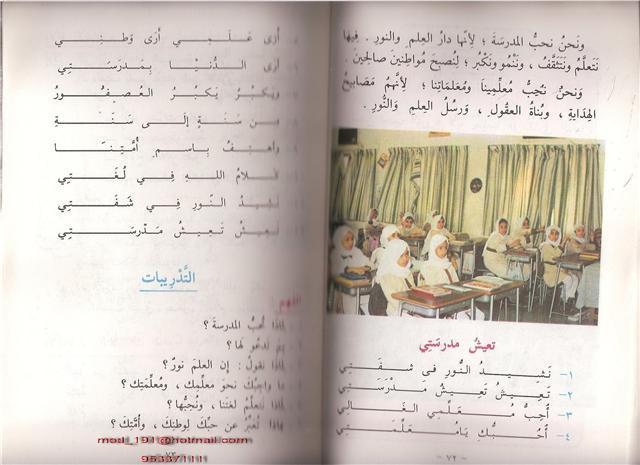 ونَحنُ نحبُّ المدرسَةَ ؛ لِأَنّها دارُ العِلمِ والنورِ . فيها
نَتعلَّمُ ونَتَثَقَّفُ ، ونَنْمُو ونَكْبُر ؛ لِنُصبحَ مُواطِنينَ صالحينَ .
ونَحنُ نُحِبُّ مُعلِّمِينا ومُعلماتِنا ؛ لِأَنَّهُم مَصَابيحُ
الهِدَايةِ ، وبُناةُ العقولِ ، ورُسُلُ العِلمِ والنُّورِ .
تعيشُ مدرسَتِي
١- نَشيـدُ النُّورِ فى شـفَتِي
٢- تَعِيـشُ تَعِيـشُ مَـدْرَسَتِي
٣- أُحِبُّ مُـعَـلِّمِي الغَـالِي
٤- أُحِبُّـكِ يَامُـعَلِّمَـتِي
- ٧٢ -
أَرَى عَـلَـمِي أَرَى وَطَـنِـي
أَرَى الدُّنْيَا بِمَدرَسَـتِي
ويَكْبُرُ يَكبُرُ العُصـفُـور
مِن سَنَـةٍ إِلَى سَـنَـةِ
وأهتِفُ بِاسمِ أُمَّتِنَـا
كَلامُ اللهِ فِي لُغَتِي
نَشِيدُ النُّورِ فِي شَفَتِي
تَعِيشُ تَعِيشُ مَدْرَسَـتِي
التَّدْرِيبات
الفهم
لِمَاذا نُحِبُّ المدرسةَ ؟
لِمَاذا نقولُ : إن العلمَ نورٌ ؟
ما واجِبُكَ نحوَ معلمِك ، ومُعلِّمَتِك ؟
لِمَاذا نتعلَّمُ لغتَنا ، ونُحِبُّها ؟
لِمَاذا تُعبِّر عن حبِّكَ لوطنِكَ ، وأُمَّتِكَ ؟
- ٧٣ -